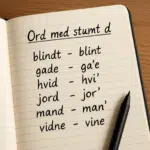 Ord med stumt d
blindt - blint
gade - ga'e
hvid - hvi'
jord - jor'
mand - man'
vidne - vine